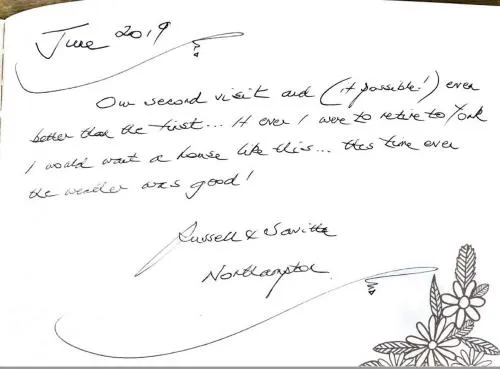 June 2019
Our second visit and (if possible!) even
better than the first... If ever I were to retire to York
I would want a house like this... this time even
the weather was good!
Russell & Savitta
Northampton